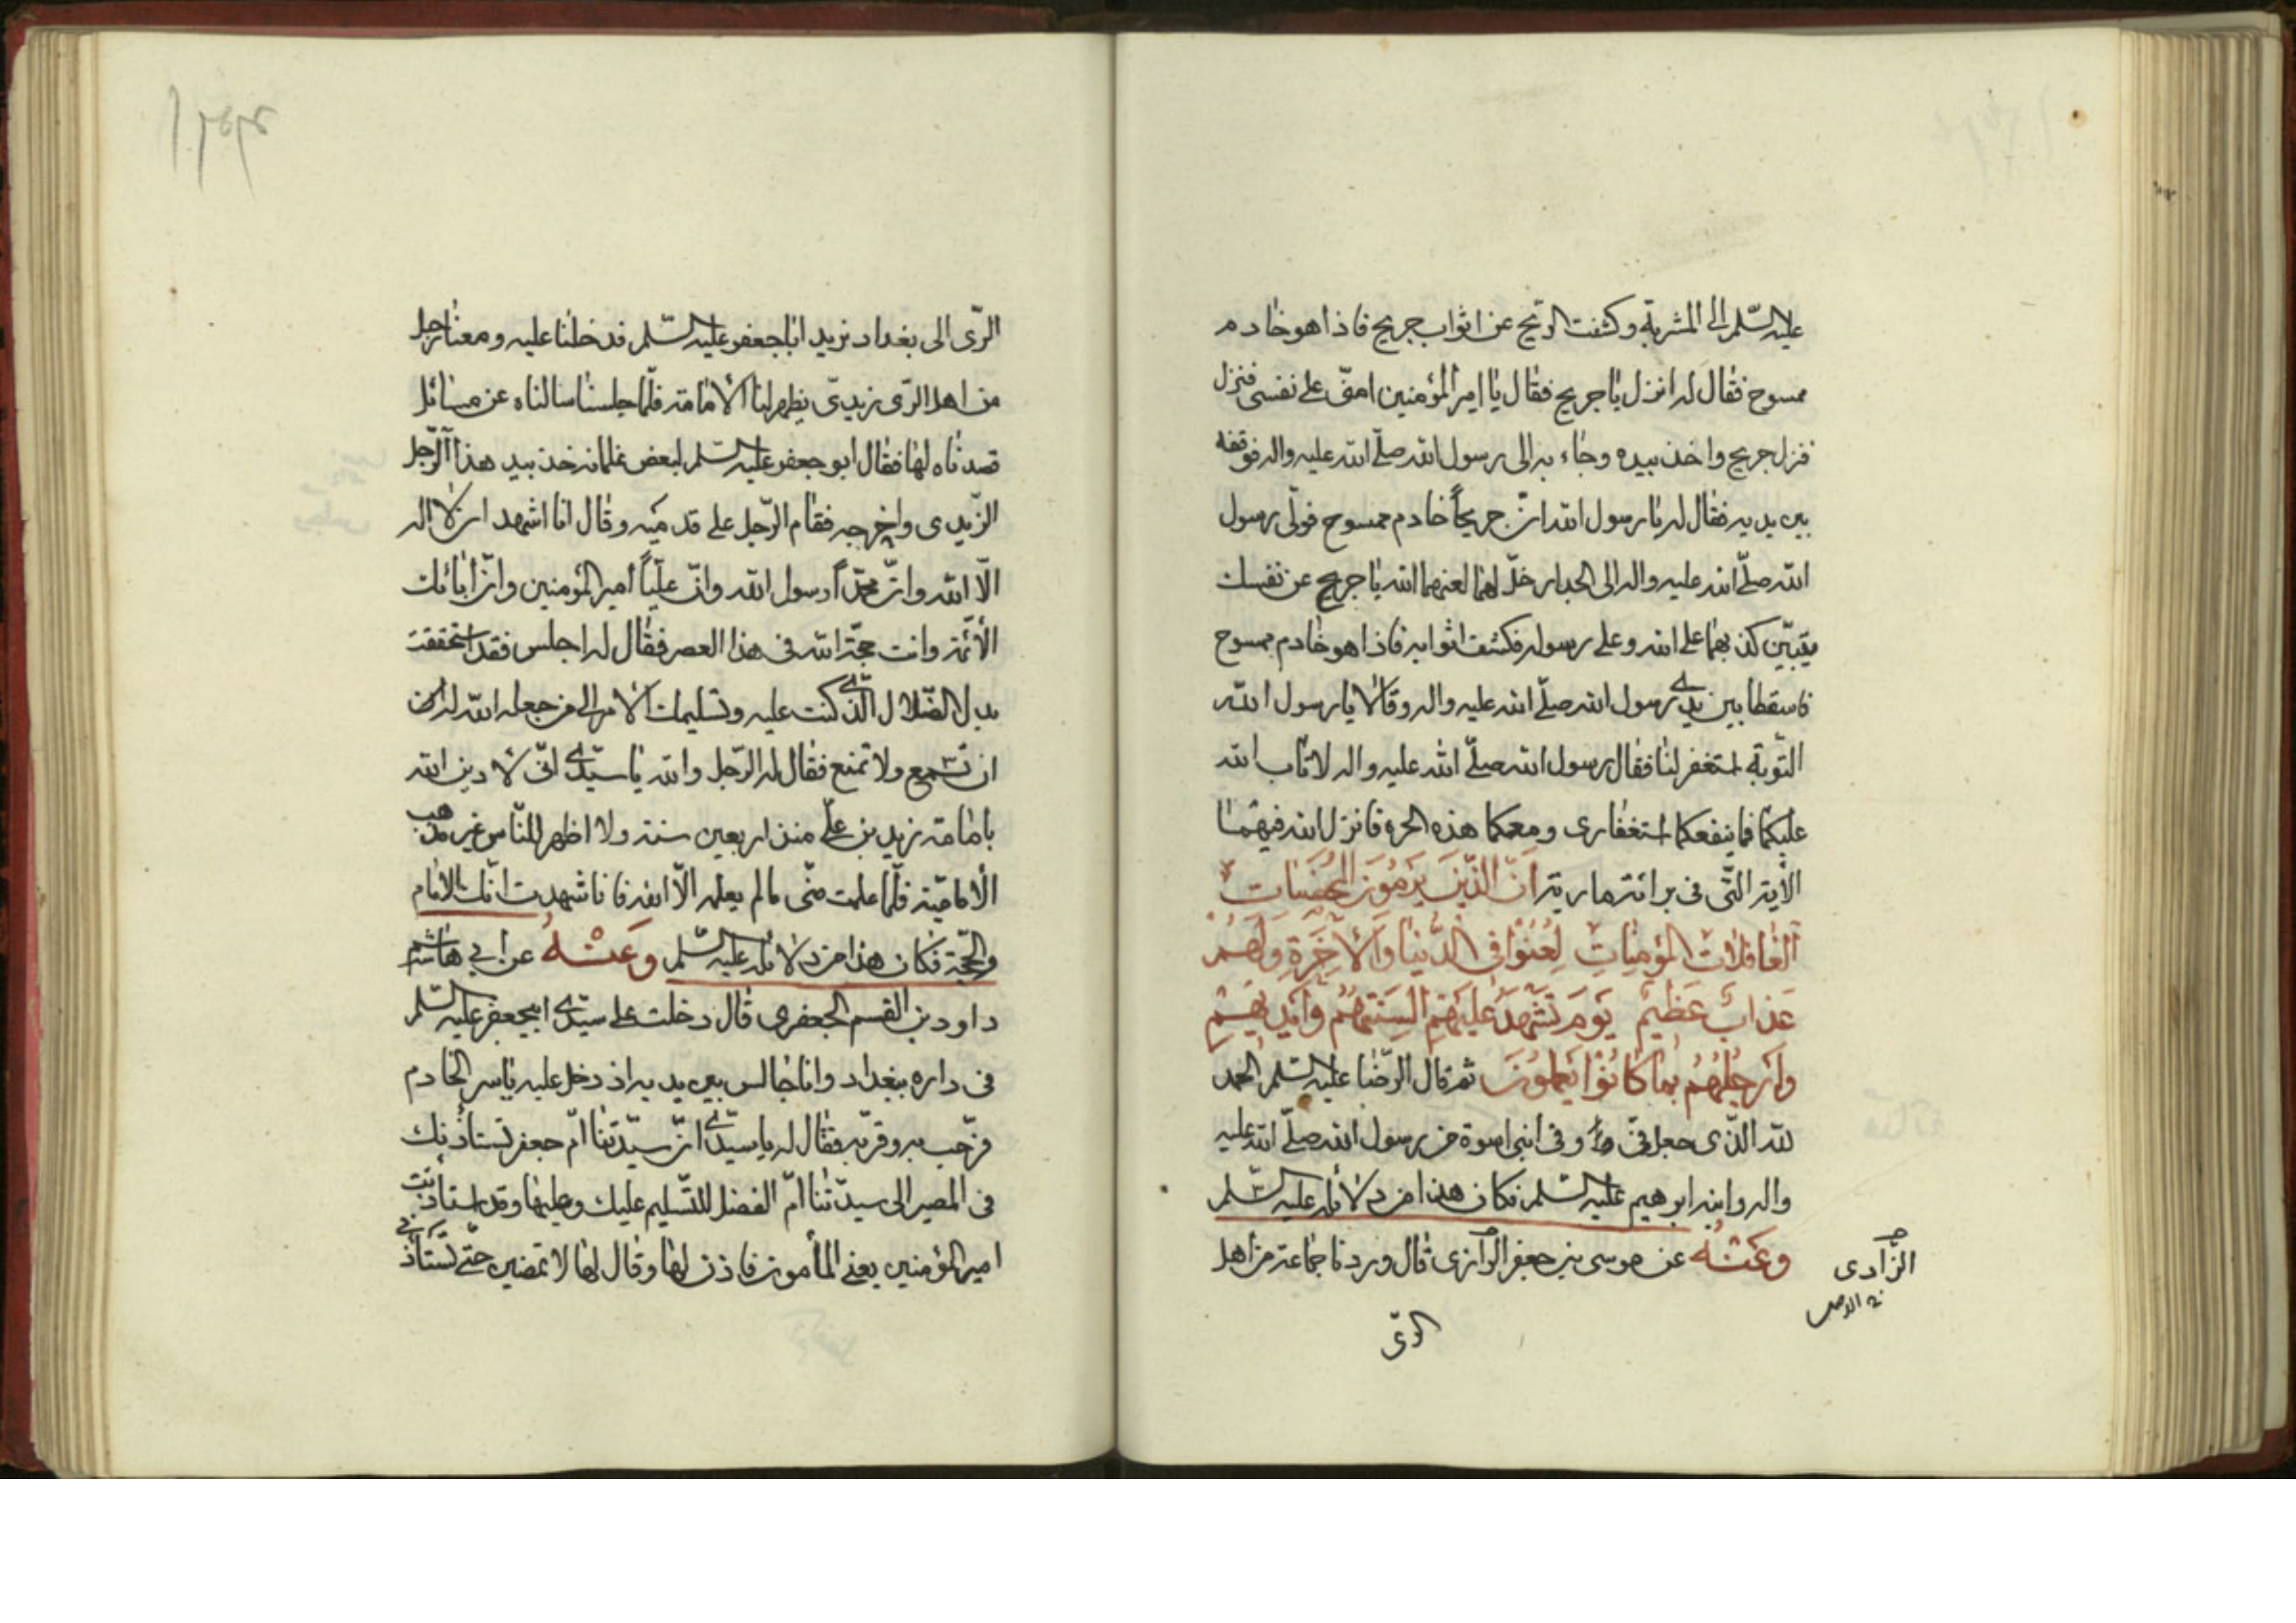 عليه السّلم الى المشربة وكشفت الريح عن اثواب جريح فاذا هو خادم
ممسوح فقال له انزل يا جريح فقال يا امير المؤمنين امنّ على نفسى فنزل
فنزل جريح واخذ بيده وجاء به الى رسول الله صلّى الله عليه واله فوقفه
بين يديه فقال له يا رسول الله انّ جريحاً خادم ممسوح فولّى رسول
الله صلّى الله عليه واله الى الجدار خلّ لهما لعنهما الله يا جريح عن نفسك
يتبيّن كذبهما على الله وعلى رسوله فكشف اثوابه فاذا هو خادم ممسوح
فاسقطا بين يدى رسول الله صلّى الله عليه واله وقالا يا رسول الله
التوبة استغفر لنا فقال رسول الله صلّى الله عليه واله لا تاب الله
عليكما فما ينفعكما استغفارى ومعكما هذه الجرءه فانزل الله فيهما
الآية التّى فى برائة مارية انّ الذّين يَرمُونَ المحصنات
الغافلات المؤمناتِ لُعِنُوا فى الدّنيا وَالآخِرَةِ وَلَهُم
عَذابٌ عَظيم يَومَ تَشهَدُ عَليهِم السِنَتُهُم وَايديهِم
وَارجُلُهُم بما كانُوا يَعملونَ ثم قال الرّضا عليه السّلم الحمد
لله الذّى جعل فىّ وفى ابنى اسوة من رسول الله صلّى الله عليه
واله وابنه ابرهيم عليه السّلم فكان هذا من دلائله عليه السّلم
وعَنْهُ عن موسى بن جعفر الرّازى قال وردنا جماعة من اهل
الزّادى
الرىّ
الرّى الى بغداد نريد ابا جعفر عليه السّلم فدخلنا عليه ومعنا رجل
من اهل الرّى زيدىّ يظهر لنا الامامة فلمّا جلسنا سالناه عن مسائل
قصدناه لها فقال ابو جعفر عليه السّلم لبعض غلمانه خذ بيد هذا الرّجل
الزّيدى واخرجه فقام الرّجل على قدميه وقال انا اشهد ان لا اله
الّا الله وانّ محمّداً رسول الله وانّ عليّاً امير المؤمنين وانّ ابائك
الأئمّة وانت حجّة الله فى هذا العصر فقال له اجلس فقد استحققت
بدل الضّلال الّذى كنت عليه وتسليمك الامر الى من جعله الله له
ان تسمع ولا تمنع فقال له الرّجل والله يا سيّدى انّى لا دين الله
بامامة زيد بن علىّ منذ اربعين سنة ولا اظهر للنّاس غير مذهب
الاماميّة فلمّا علمت منّى ما لم يعلمه الّا الله فانا اشهد انّك الامام
والحجّة فكان هذا من دلائله عليه السّلم وعَنْهُ عن ابى هاشم
داود بن القسم الجعفرى قال دخلت على سيّدى ابيجعفر عليه السّلم
فى داره ببغداد وانا جالس بين يديه اذ دخل عليه ياسر الخادم
فرّحب به وقرّبه فقال له يا سيّدى انّ سيّدتنا امّ جعفر تستأذنك
فى المصير الى سيدّتنا امّ الفضل للتّسليم عليك وعليها وقد استأذنت
امير المؤمنين يعنى المأمون فاذن لها وقال لها لا تمضين حتّى تستأذنى